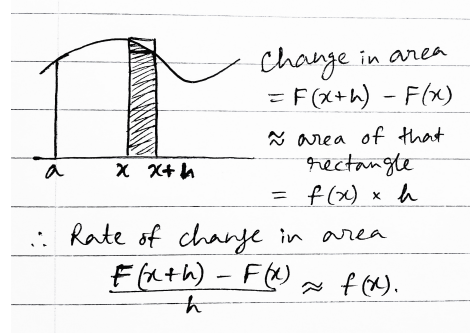 Change in area
= F(x+h) - F(x)
≈ area of that
rectangle
= f(x) × h
a x x+h
∴ Rate of change in area
F(x+h) - F(x) / h ≈ f(x).